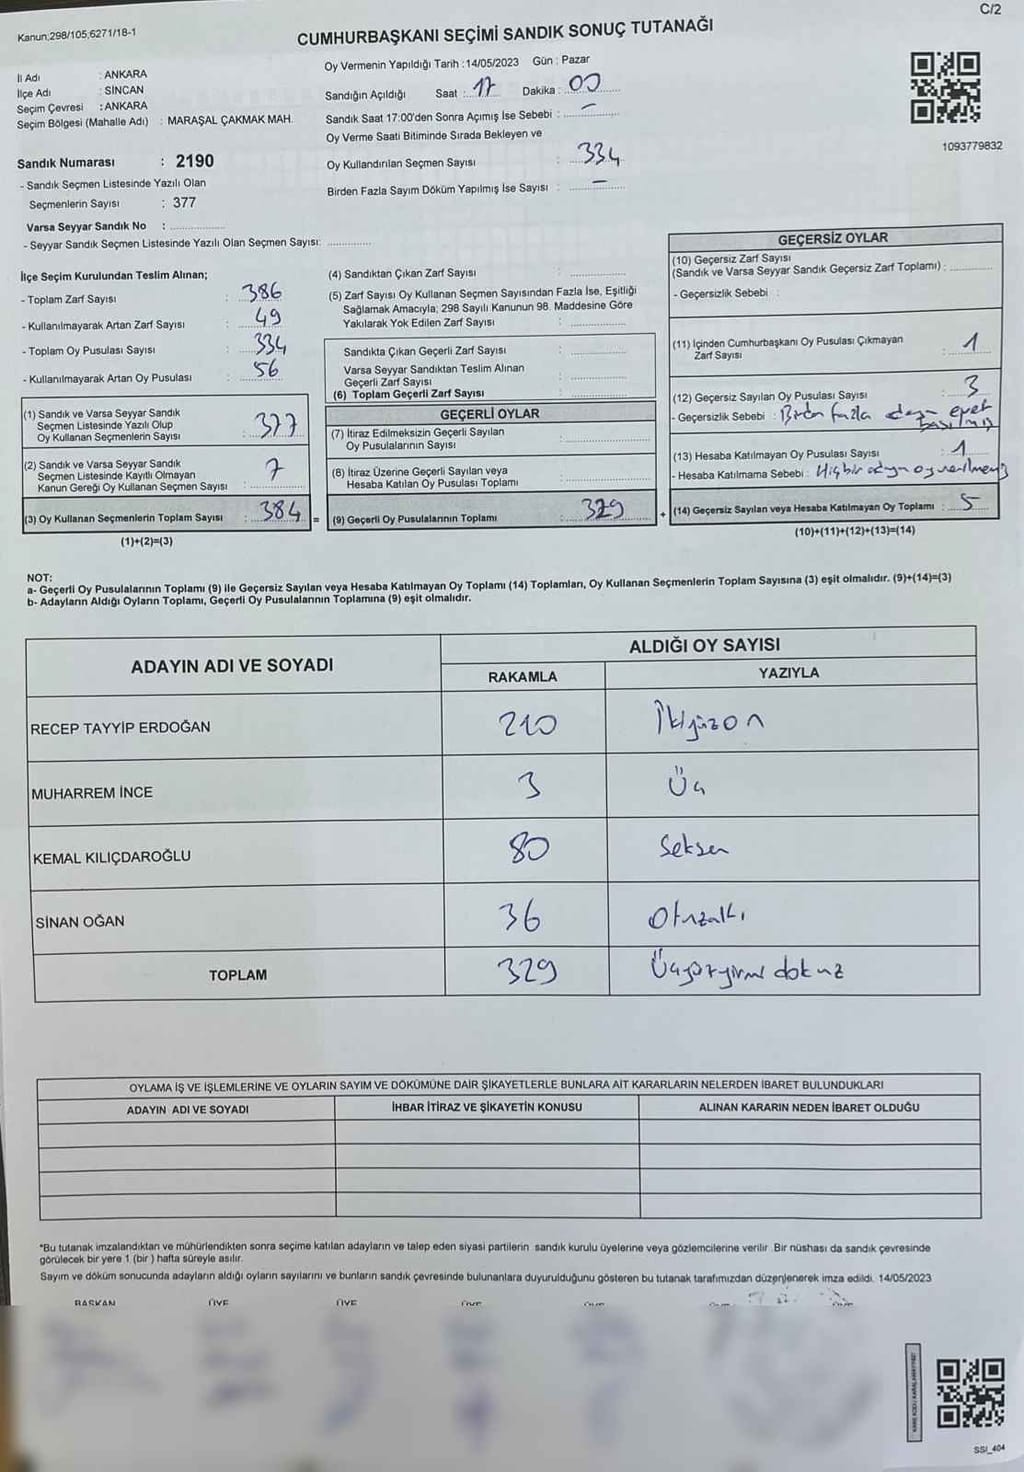 C/2
Kanun;298/105;6271/18-1
CUMHURBAŞKANI SEÇİMİ SANDIK SONUÇ TUTANAĞI
İl Adı : ANKARA
İlçe Adı : SİNCAN
Seçim Çevresi : ANKARA
Seçim Bölgesi (Mahalle Adı) : MARAŞAL ÇAKMAK MAH.
Oy Vermenin Yapıldığı Tarih : 14/05/2023 Gün : Pazar
Sandığın Açıldığı Saat : 17 Dakika : 00
Sandık Saat 17:00'den Sonra Açımış İse Sebebi : –
Oy Verme Saati Bitiminde Sırada Bekleyen ve
Oy Kullandırılan Seçmen Sayısı : 334
Birden Fazla Sayım Döküm Yapılmış İse Sayısı : –
1093779832
Sandık Numarası : 2190
- Sandık Seçmen Listesinde Yazılı Olan
Seçmenlerin Sayısı : 377
Varsa Seyyar Sandık No :
- Seyyar Sandık Seçmen Listesinde Yazılı Olan Seçmen Sayısı:
İlçe Seçim Kurulundan Teslim Alınan;
- Toplam Zarf Sayısı : 386
- Kullanılmayarak Artan Zarf Sayısı : 49
- Toplam Oy Pusulası Sayısı : 334
- Kullanılmayarak Artan Oy Pusulası : 56
(1) Sandık ve Varsa Seyyar Sandık
Seçmen Listesinde Yazılı Olup
Oy Kullanan Seçmenlerin Sayısı : 377
(2) Sandık ve Varsa Seyyar Sandık
Seçmen Listesinde Kayıtlı Olmayan
Kanun Gereği Oy Kullanan Seçmen Sayısı : 7
(3) Oy Kullanan Seçmenlerin Toplam Sayısı : 384 =
(1)+(2)=(3)
(4) Sandıktan Çıkan Zarf Sayısı :
(5) Zarf Sayısı Oy Kullanan Seçmen Sayısından Fazla İse, Eşitliği
Sağlamak Amacıyla; 298 Sayılı Kanunun 98. Maddesine Göre
Yakılarak Yok Edilen Zarf Sayısı :
Sandıkta Çıkan Geçerli Zarf Sayısı :
Varsa Seyyar Sandıktan Teslim Alınan
Geçerli Zarf Sayısı :
(6) Toplam Geçerli Zarf Sayısı :
GEÇERLİ OYLAR
(7) İtiraz Edilmeksizin Geçerli Sayılan
Oy Pusulalarının Sayısı :
(8) İtiraz Üzerine Geçerli Sayılan veya
Hesaba Katılan Oy Pusulası Toplamı :
(9) Geçerli Oy Pusulalarının Toplamı : 329 +
GEÇERSİZ OYLAR
(10) Geçersiz Zarf Sayısı
(Sandık ve Varsa Seyyar Sandık Geçersiz Zarf Toplamı) :
- Geçersizlik Sebebi :
(11) İçinden Cumhurbaşkanı Oy Pusulası Çıkmayan
Zarf Sayısı : 1
(12) Geçersiz Sayılan Oy Pusulası Sayısı : 3
- Geçersizlik Sebebi : Birden fazla evet
basılmış
(13) Hesaba Katılmayan Oy Pusulası Sayısı : 1
- Hesaba Katılmama Sebebi : Hiçbir adaya oy verilmemiş
(14) Geçersiz Sayılan veya Hesaba Katılmayan Oy Toplamı : 5
(10)+(11)+(12)+(13)=(14)
NOT:
a- Geçerli Oy Pusulalarının Toplamı (9) ile Geçersiz Sayılan veya Hesaba Katılmayan Oy Toplamı (14) Toplamları, Oy Kullanan Seçmenlerin Toplam Sayısına (3) eşit olmalıdır. (9)+(14)=(3)
b- Adayların Aldığı Oyların Toplamı, Geçerli Oy Pusulalarının Toplamına (9) eşit olmalıdır.
ADAYIN ADI VE SOYADI
ALDIĞI OY SAYISI
RAKAMLA YAZIYLA
RECEP TAYYİP ERDOĞAN 210 İkiyüzon
MUHARREM İNCE 3 Üç
KEMAL KILIÇDAROĞLU 80 Seksen
SİNAN OĞAN 36 Otuzaltı
TOPLAM 329 Üçyüzyirmi dokuz
OYLAMA İŞ VE İŞLEMLERİNE VE OYLARIN SAYIM VE DÖKÜMÜNE DAİR ŞİKAYETLERLE BUNLARA AİT KARARLARIN NELERDEN İBARET BULUNDUKLARI
ADAYIN ADI VE SOYADI İHBAR İTİRAZ VE ŞİKAYETİN KONUSU ALINAN KARARIN NEDEN İBARET OLDUĞU
*Bu tutanak imzalandıktan ve mühürlendikten sonra seçime katılan adayların ve talep eden siyasi partilerin sandık kurulu üyelerine veya gözlemcilerine verilir. Bir nüshası da sandık çevresinde
görülecek bir yere 1 (bir) hafta süreyle asılır.
Sayım ve döküm sonucunda adayların aldığı oyların sayılarını ve bunların sandık çevresinde bulunanlara duyurulduğunu gösteren bu tutanak tarafımızdan düzenlenerek imza edildi. 14/05/2023
BAŞKAN ÜYE ÜYE
SSI_404